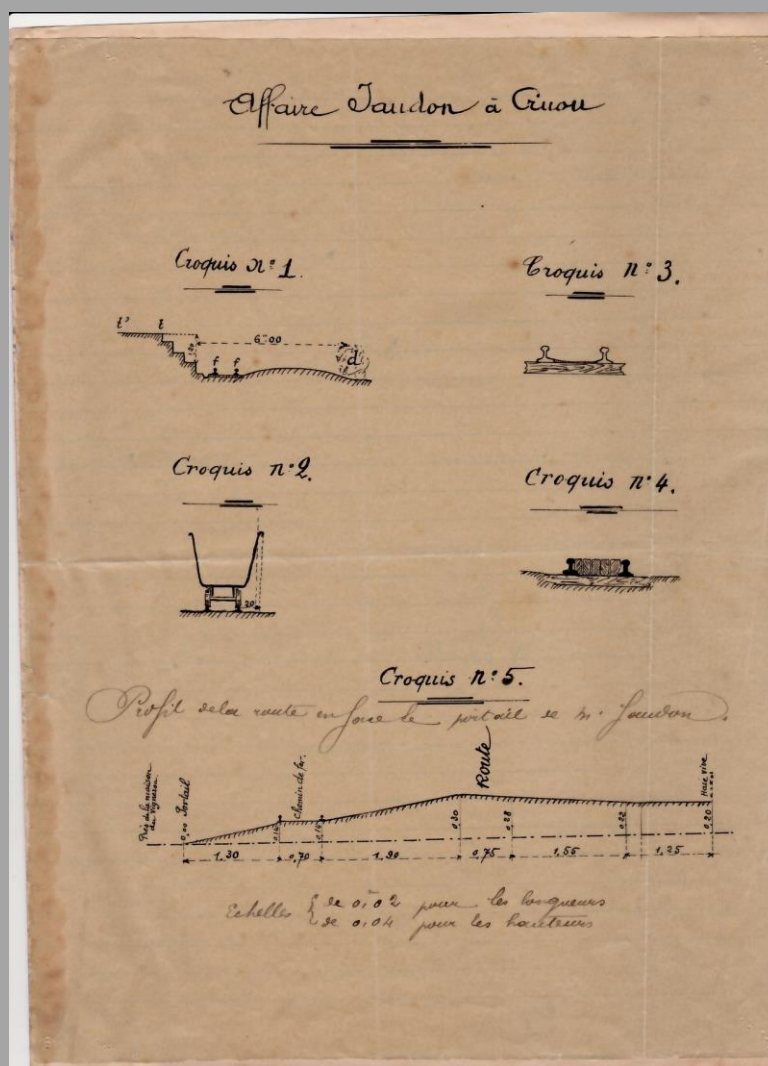 Affaire Jaudon à Civou
Croquis n° 1.
t' t
6m00
f f d
Croquis n° 3.
Croquis n° 2.
20
Croquis n° 4.
Croquis n° 5.
Profil de la route en face le portail de M. Jaudon.
Près de la maison du vigneron
0,00 Portail
Chemin de fer.
Route
Haie vive
0,16 0,16 0,30 0,28 0,22 0,20
1.30 0,70 1,90 0,75 1,55 1,25
Echelles { de 0m02 pour les longueurs
{ de 0,04 pour les hauteurs